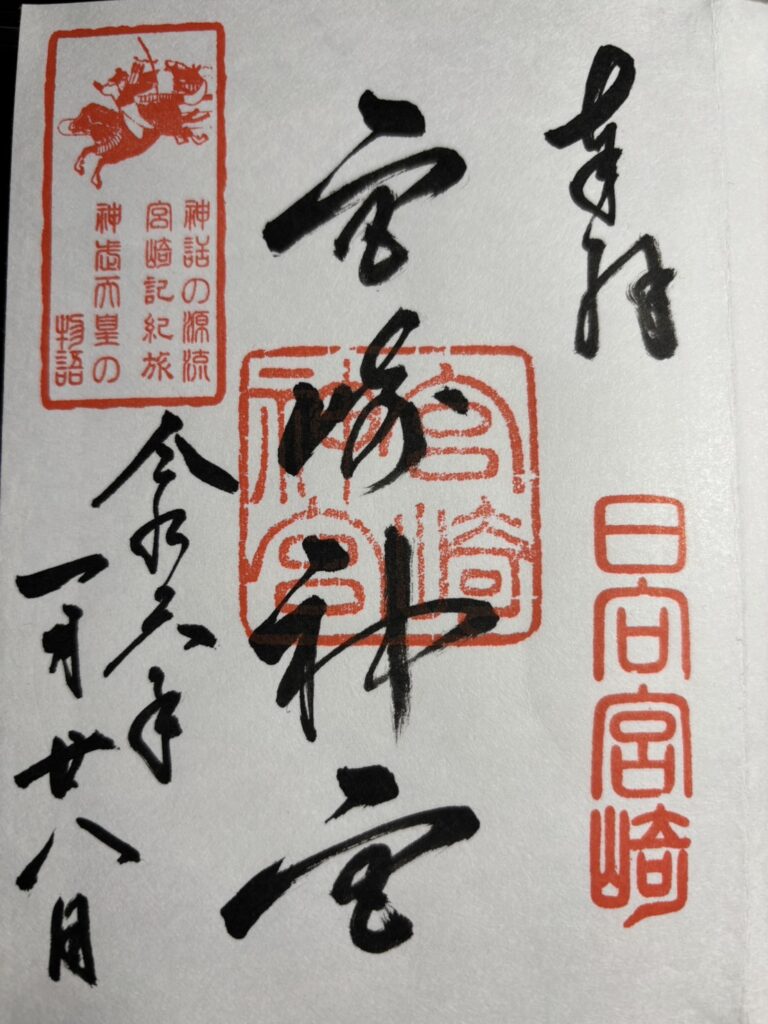 奉拝
日向宮崎
宮崎神宮
宮崎
神宮
神話の源流
宮崎記紀旅
神武天皇の
物語
令和六年
一月廿八日